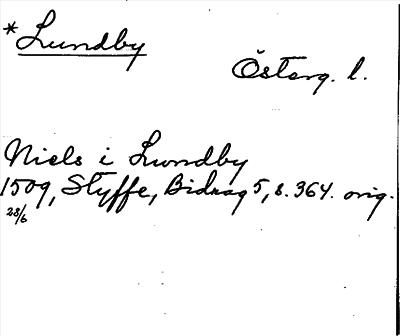 *Lundby
Österg. l.
Niels i Lundby
1509, Styffe, Bidrag 5, s. 364. orig.
28/6